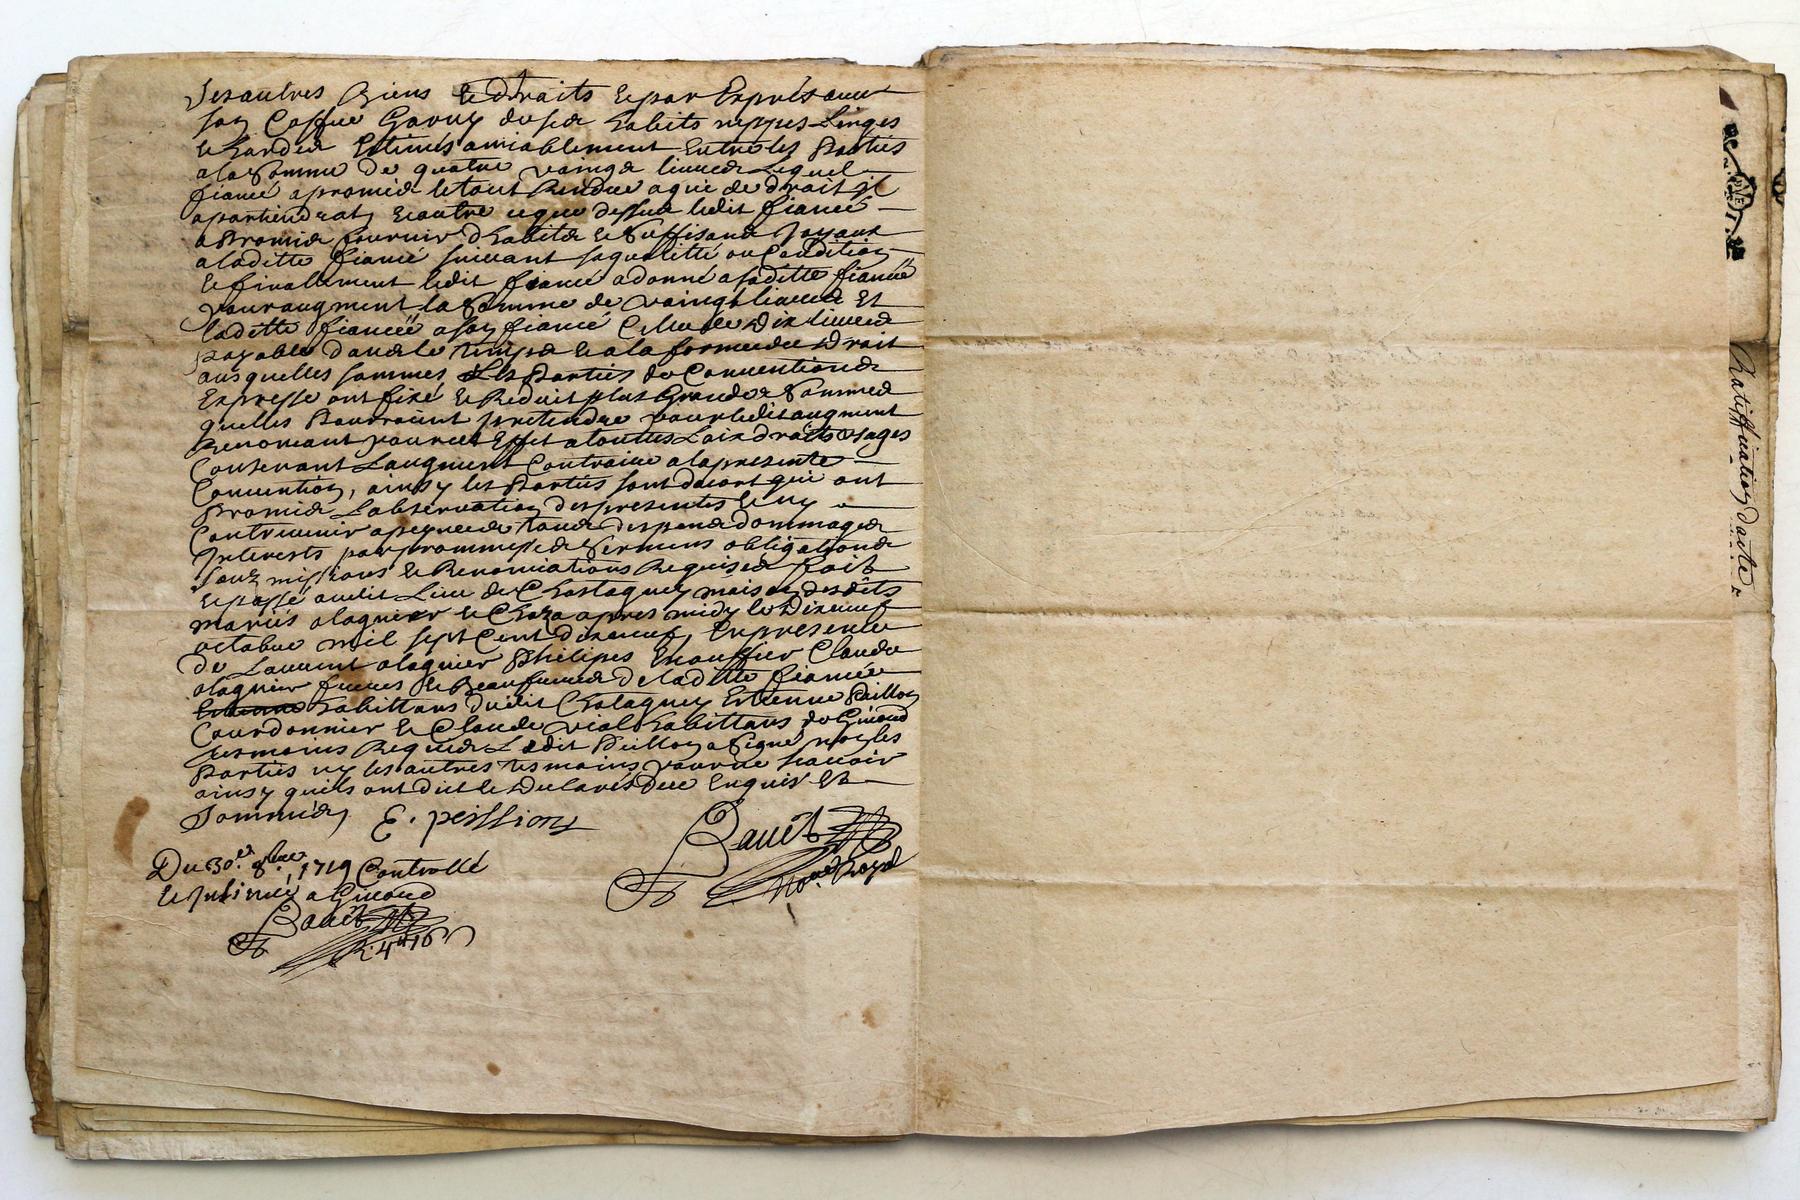 ses autres Biens et droits et par Exprés avec
son Coffre Garny de ses habits nippes Linges
et hardes Estimés amiablement Entre les Parties
a la somme de quatre vaingt livres Lequel
fiancé a promis le tout Rendre a qui de droit il
apartiendrat, et outre ce que dessus ledit fiancé
a Promis fournir d'habits et suffisans Joyaux
a laditte fiancé suivant sa qualitté ou Condition
et finallement ledit fiancé a donné a laditte fiancée
pour augment la somme de vaingt livres Et
laditte fianceé a son fiancé Celle de Dix livres
payable dans le temps et a la forme du Droit
aus quelles sommes Les Parties de Conventions
Expresse ont fixé et Reduit plus Grandes Sommes
quelles Pourroient pretendre pour ledit augment
Renonceant pour cet Effet a toutes Loix droits usages
Concernant Laugment Contraire a la presente
Convention, ainsy les Parties sont d'acort qui ont
Promis Lobservation des presentes et ny
Contrevenir a peyne de tous despens dommages
Interests par prommesses sermens obligations
sous missions et Renonciations Requises fait
et passé audit Lieu de Chastagney maison desdits
mariés alagnier et Chaza apres midy le Dixneuf
octobre mil sept Cent dixneuf, En presence
de Laurent alagnier Philipes Claude
alagnier freres et Beaufreres de laditte fiancée
habittans dudit Chatagney Estienne Peillon
Courdonnier et Claude vial habittans de
tesmoins Requis Ledit Peillon a signé non les
Parties ny les autres tesmoins pour ne scavoir
ainsy quils ont dit et Declarés Due Enquis Et
Sommés,
E. peillion
Bauet
No.re Royal
Du 30.e 8bre 1719 Controllé
et Insinué a
Bauet
R. 4# 16
Ratiffication dacte